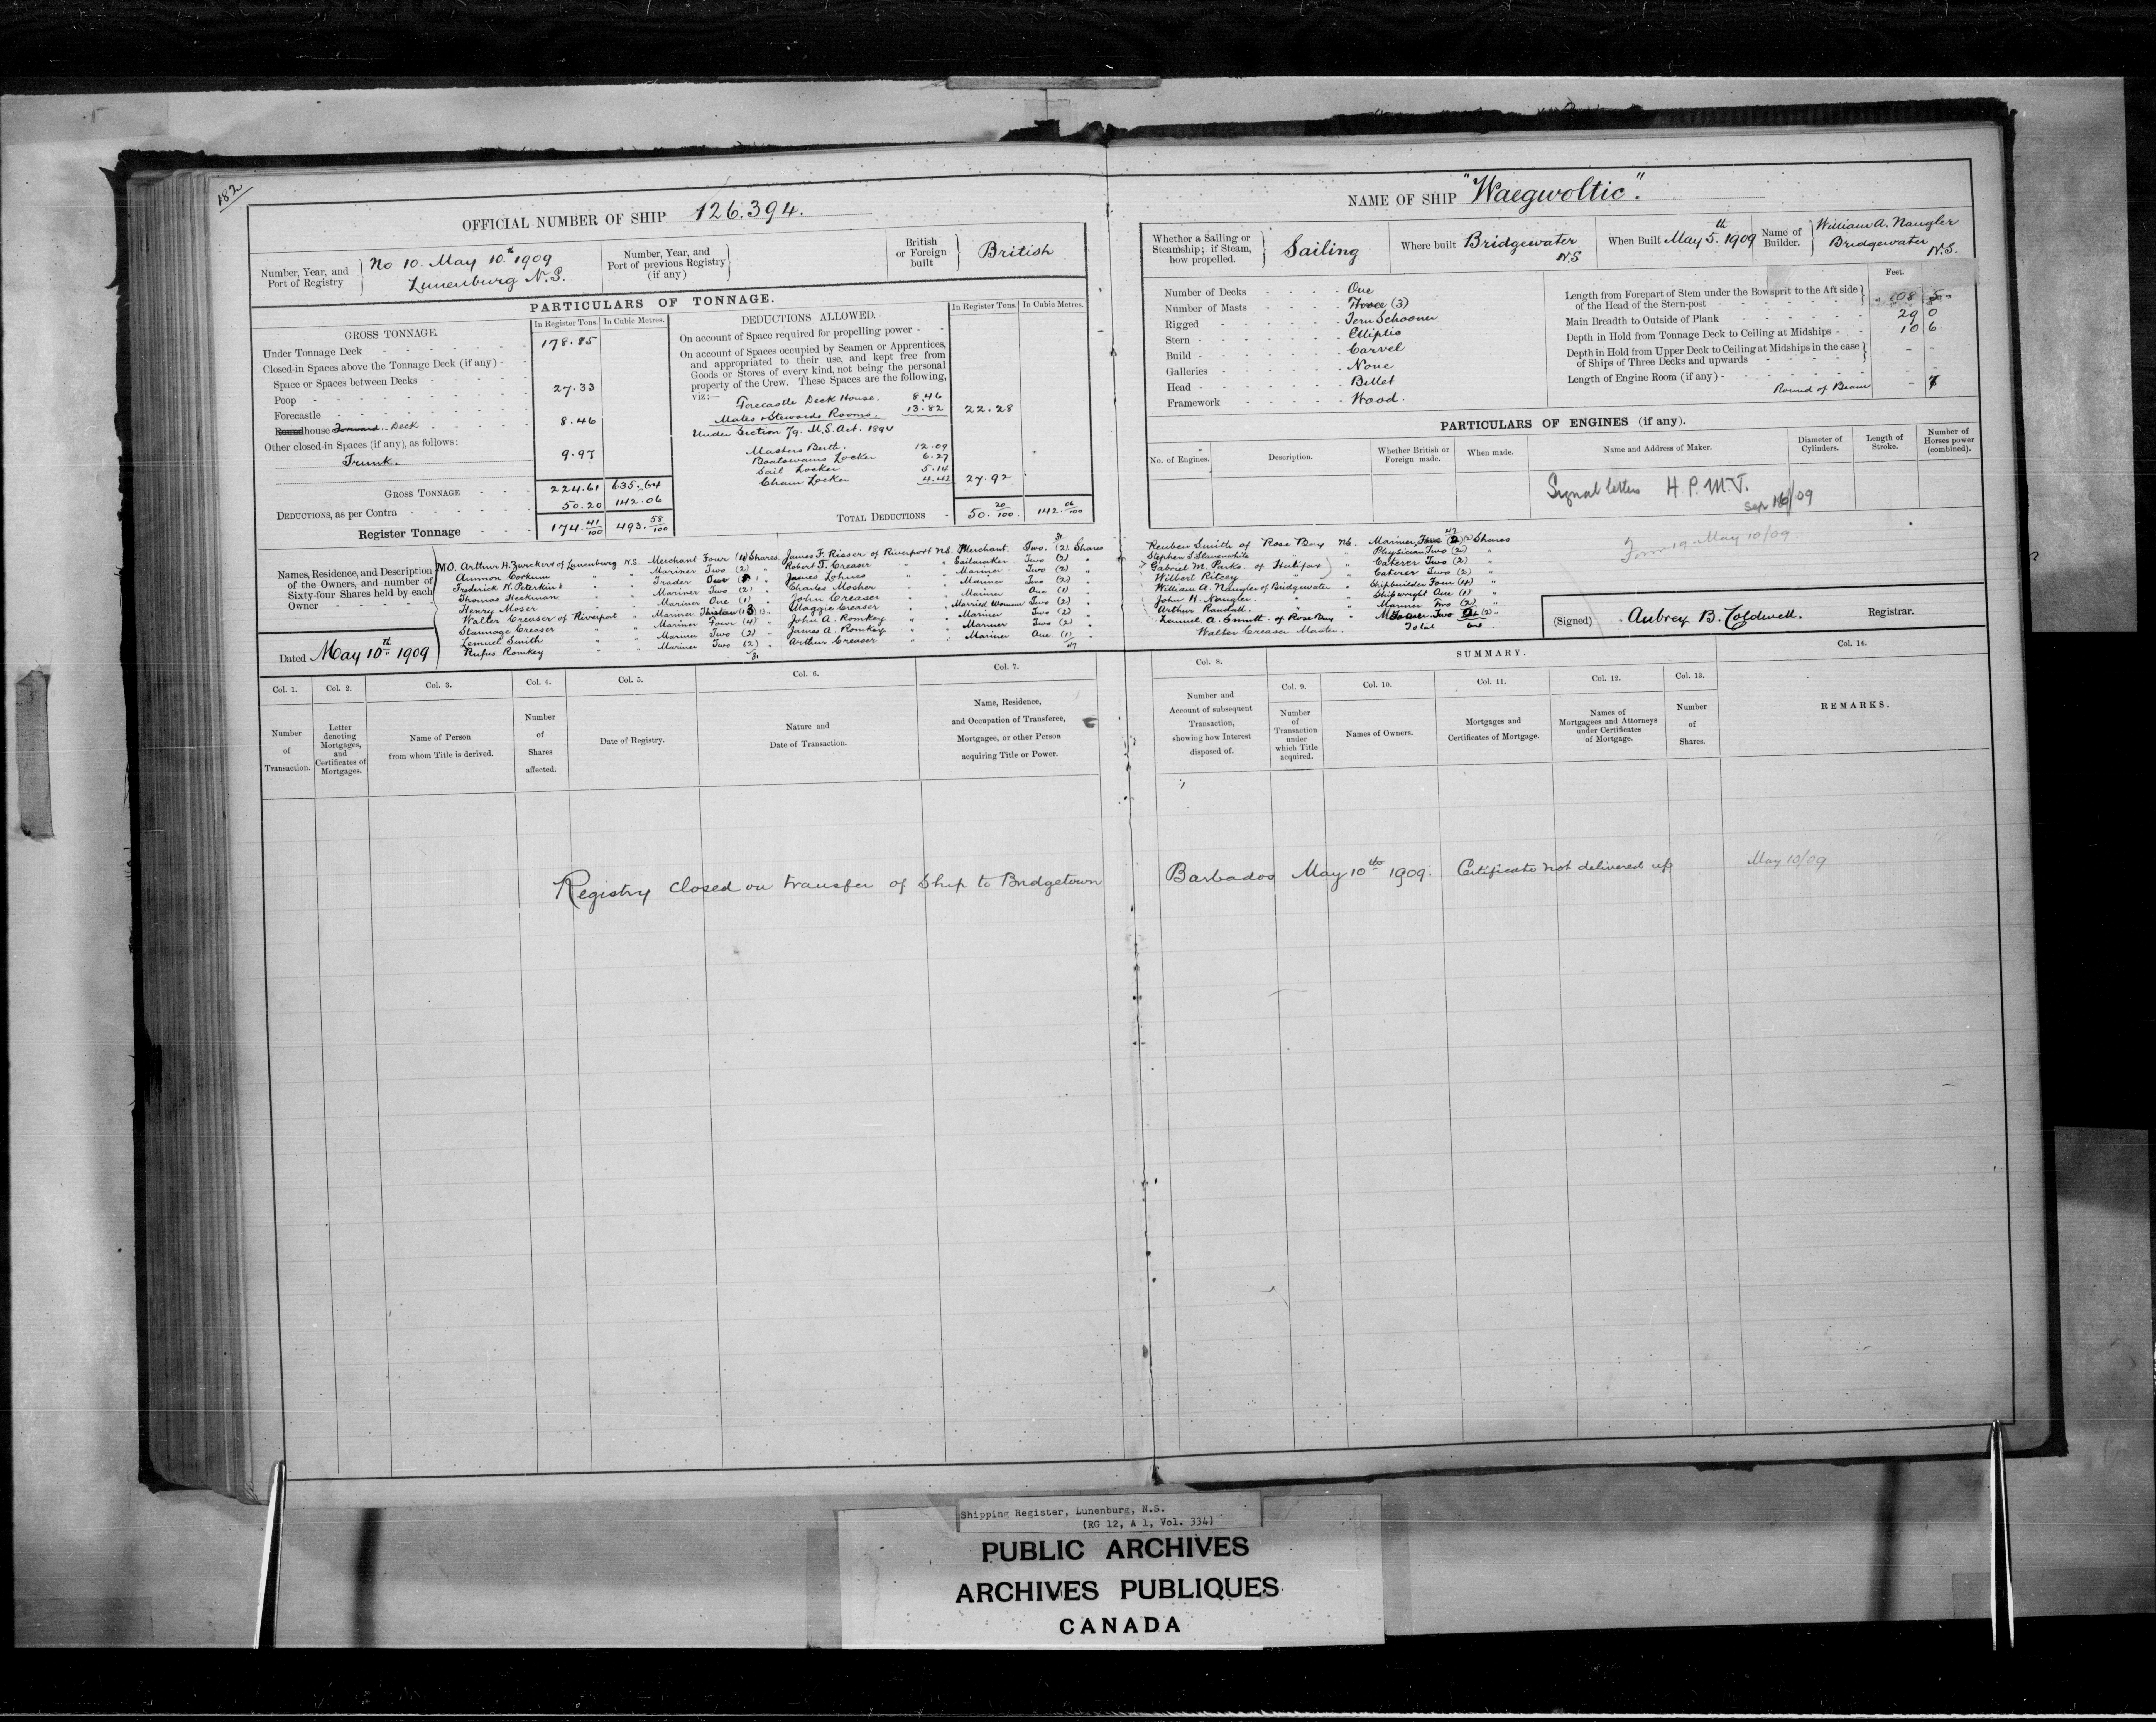 182
OFFICIAL NUMBER OF SHIP 126.394.
Number, Year, and Port of Registry } No 10. May 10th 1909 Lunenburg N.S.
Number, Year, and Port of previous Registry (if any) }
British or Foreign built } British
PARTICULARS OF TONNAGE.
GROSS TONNAGE.
In Register Tons. In Cubic Metres.
Under Tonnage Deck 178.85
Closed-in Spaces above the Tonnage Deck (if any)
Space or Spaces between Decks
Poop 27.33
Forecastle
Roundhouse Forward Deck 8.46
Other closed-in Spaces (if any), as follows:
Trunk. 9.97
GROSS TONNAGE 224.61 635.64
DEDUCTIONS, as per Contra 50.20 142.06
Register Tonnage 174.41/100 493.58/100
DEDUCTIONS ALLOWED.
In Register Tons. In Cubic Metres.
On account of Space required for propelling power
On account of Spaces occupied by Seamen or Apprentices,
and appropriated to their use, and kept free from
Goods or Stores of every kind, not being the personal
property of the Crew. These Spaces are the following,
viz:—
Forecastle Deck House. 8.46
Mates & Stewards Rooms. 13.82 22.28
Under Section 79. M.S. Act. 1894
Masters Berth. 12.09
Boatswains Locker 6.27
Sail Locker 5.14
Chain Locker 4.42 27.92
TOTAL DEDUCTIONS 50.20/100 142.06/100
Names, Residence, and Description
of the Owners, and number of
Sixty-four Shares held by each
Owner
M.O. Arthur H. Zwicker of Lunenburg N.S. Merchant Four (4) Shares
Ammon Corkum " " Mariner Two (2) "
Frederick W. Peterkin " " Trader
Thomas Heckman " " Mariner Two (2) "
Henry Moser " " Mariner One (1) "
Walter Creaser of Riverport " Mariner Thirteen (13)
Stannage Creaser " " Mariner Four (4) "
Lemuel Smith " " Mariner Two (2) "
Rufus Romkey " " Mariner Two (2) "
31
31
James F. Risser of Riverport N.S. Merchant. Two. (2) Shares
Robert T. Creaser " " Sailmaker Two (2) "
James Lohnes " " Mariner Two (2) "
Charles Mosher " " Mariner Two (2) "
John Creaser " " Mariner One (1) "
Maggie Creaser " " Married Woman Two (2) "
John A. Romkey " " Mariner Two (2) "
James A. Romkey " " Mariner Two (2) "
Arthur Creaser " " Mariner One (1) "
47
Dated May 10th 1909
Col. 1. Col. 2. Col. 3. Col. 4. Col. 5. Col. 6. Col. 7.
Number of Transaction.
Letter denoting Mortgages, and Certificates of Mortgages.
Name of Person from whom Title is derived.
Number of Shares affected.
Date of Registry.
Nature and Date of Transaction.
Name, Residence, and Occupation of Transferee, Mortgagee, or other Person acquiring Title or Power.
NAME OF SHIP "Waegwoltic".
Whether a Sailing or Steamship; if Steam, how propelled. } Sailing
Where built Bridgewater N.S
When Built May 5th. 1909
Name of Builder. } William A. Naugler Bridgewater N.S.
Number of Decks One
Number of Masts Three (3)
Rigged Tern Schooner
Stern Elliptic
Build Carvel
Galleries None
Head Billet
Framework Wood.
Feet.
Length from Forepart of Stem under the Bowsprit to the Aft side
of the Head of the Stern-post 108 5
Main Breadth to Outside of Plank 29 0
Depth in Hold from Tonnage Deck to Ceiling at Midships 10 6
Depth in Hold from Upper Deck to Ceiling at Midships in the case
of Ships of Three Decks and upwards
Length of Engine Room (if any)
Round of Beam
PARTICULARS OF ENGINES (if any).
No. of Engines. Description. Whether British or Foreign made. When made. Name and Address of Maker. Diameter of Cylinders. Length of Stroke. Number of Horses power (combined).
Signal letters H.P.M.T.
47
Reuben Smith of Rose Bay N.S. Mariner, Shares
Stephen S Slauenwhite " " Physician Two (2) "
Gabriel M. Parks of Halifax " Caterer Two (2) "
Wilbert Ritcey " " Caterer Two (2) "
William A. Naugler of Bridgewater " Shipbuilder Four (4) "
John H. Naugler. " " Shipwright One (1) "
Arthur Randall. " " Mariner Two (2) "
Lemuel A. Smith of Rose Bay " Two (2) "
Walter Creaser Master. Total 64
Form 19 May 10/09.
(Signed) Aubrey B. Coldwell. Registrar.
SUMMARY.
Col. 8. Col. 9. Col. 10. Col. 11. Col. 12. Col. 13. Col. 14.
Number and Account of subsequent Transaction, showing how Interest disposed of.
Number of Transaction under which Title acquired.
Names of Owners.
Mortgages and Certificates of Mortgage.
Names of Mortgagees and Attorneys under Certificates of Mortgage.
Number of Shares.
REMARKS.
Registry closed on transfer of Ship to Bridgetown Barbados May 10th 1909. Certificate not delivered up May 10/09
Shipping Register, Lunenburg, N.S.
(RG 12, A 1, Vol. 334)
PUBLIC ARCHIVES
ARCHIVES PUBLIQUES
CANADA